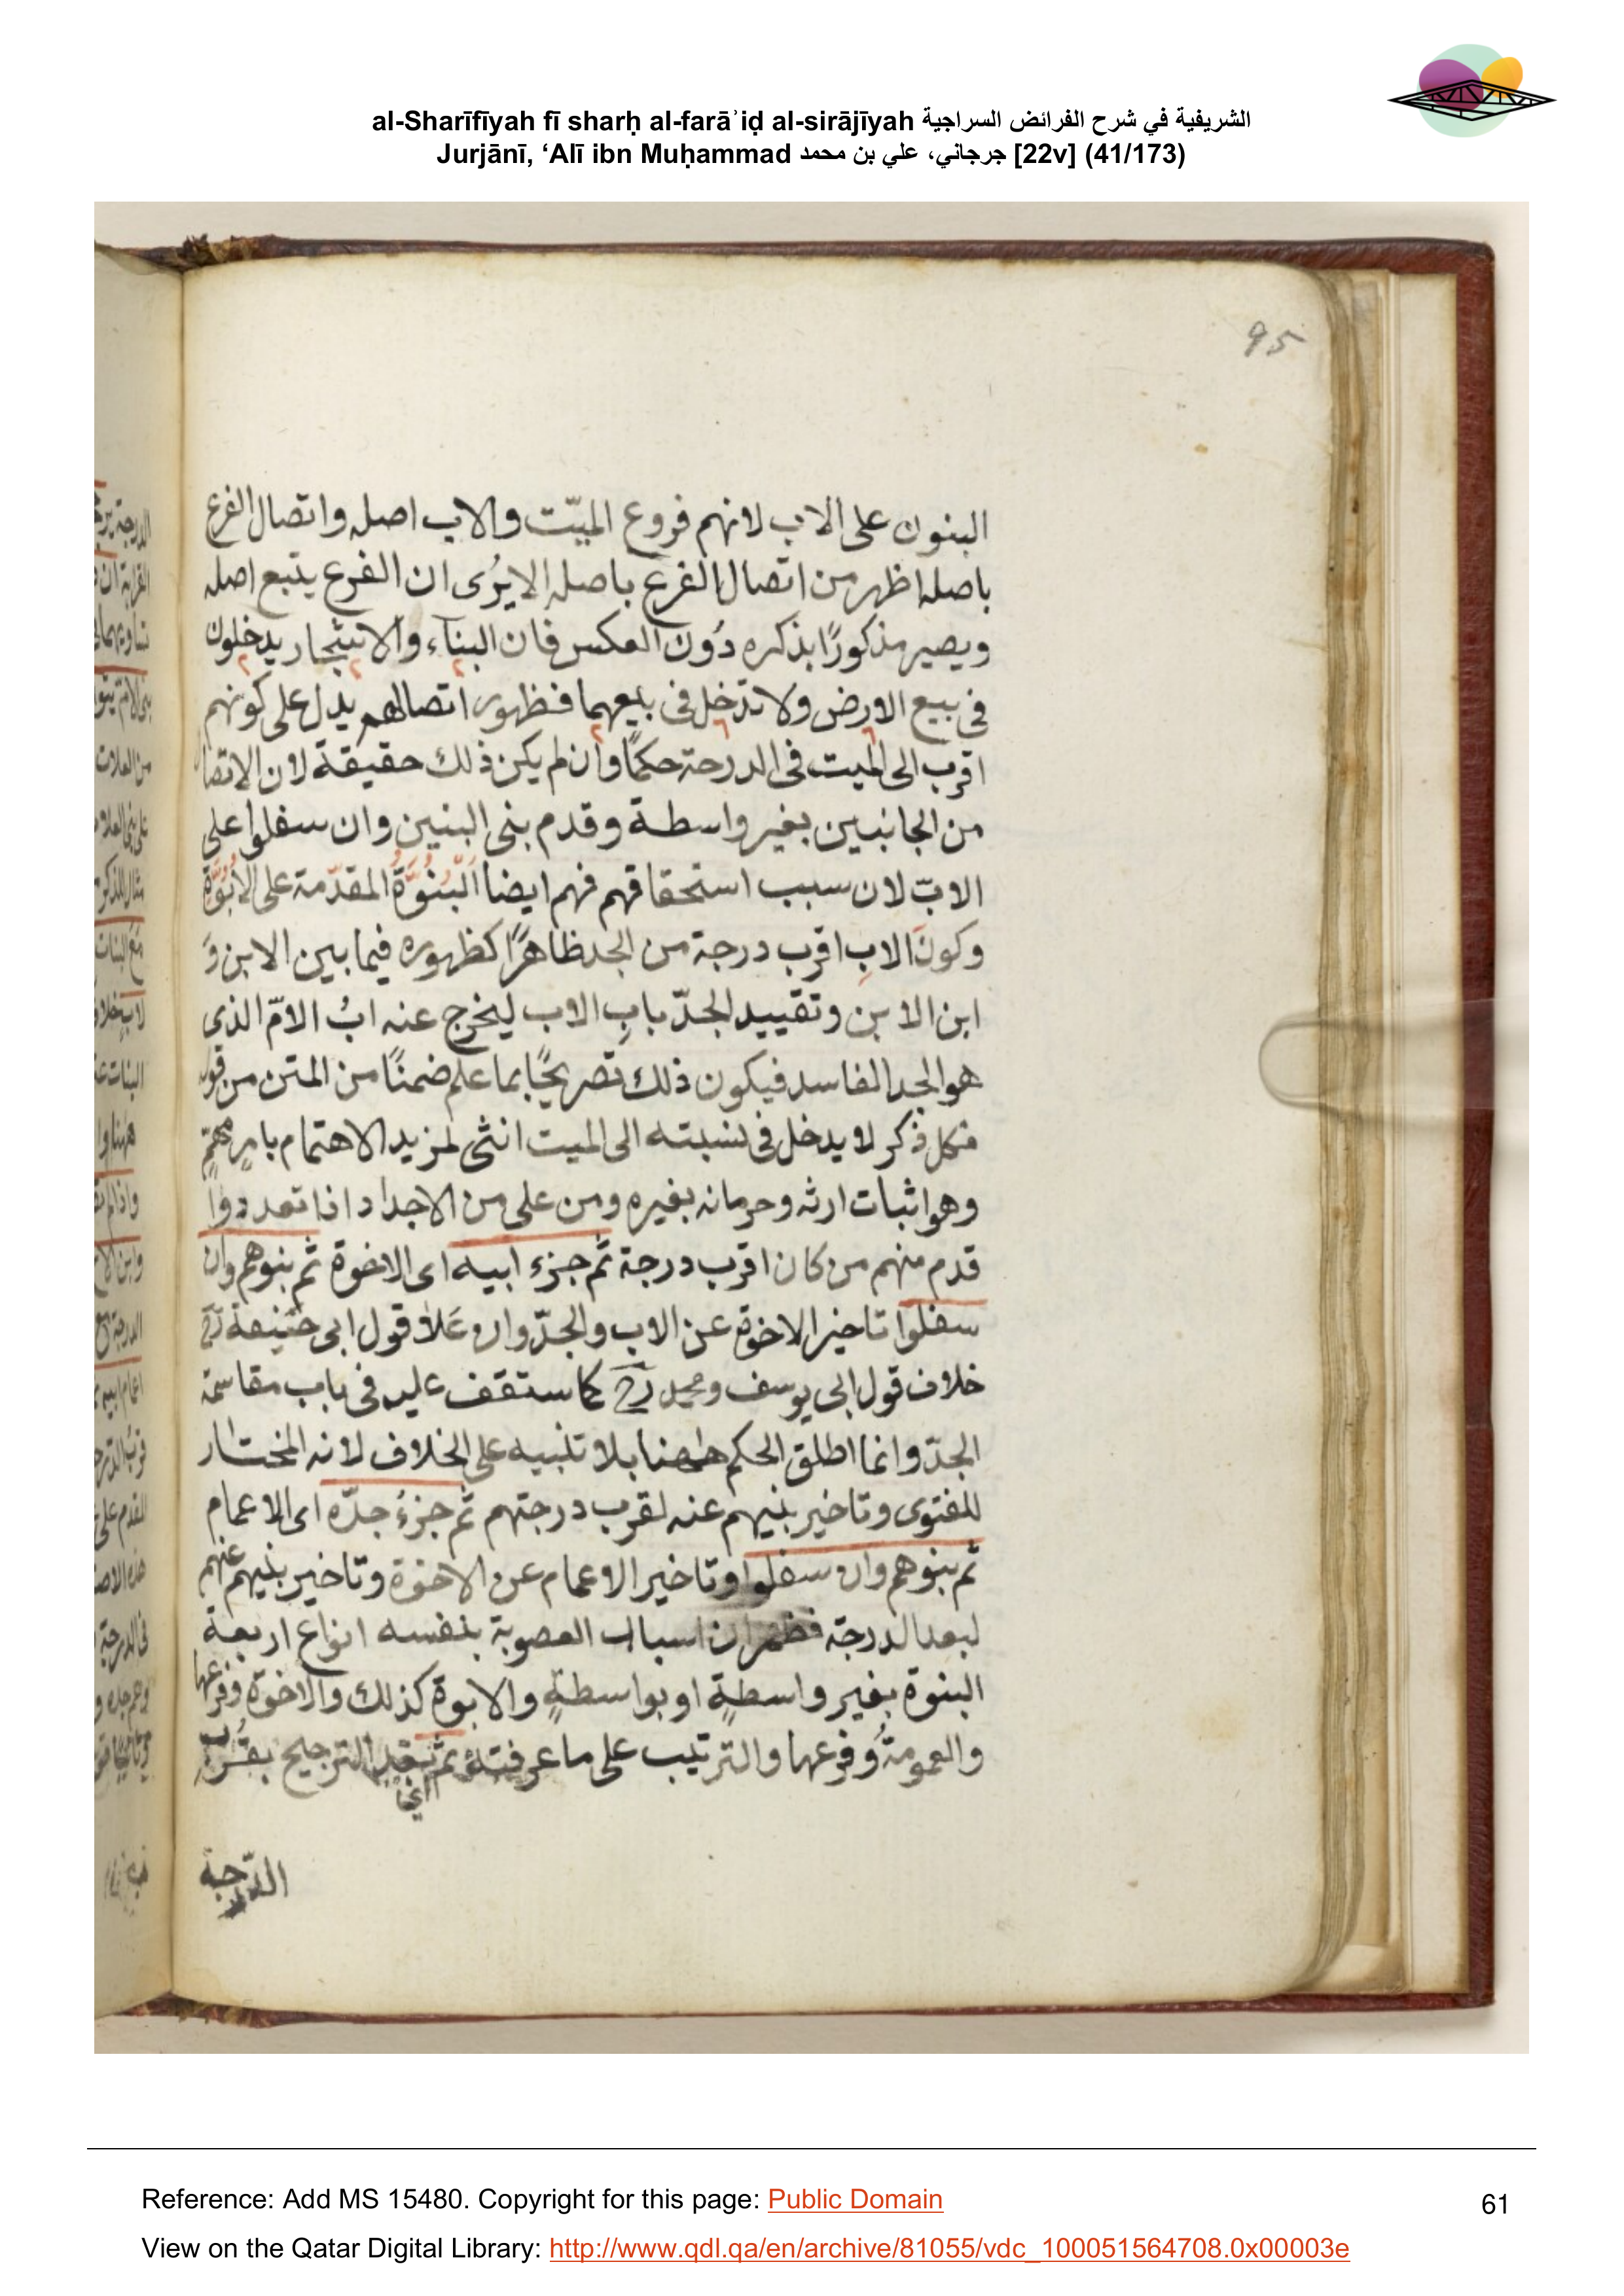 al-Sharīfīyah fī sharḥ al-farāʾiḍ al-sirājīyah الشريفية في شرح الفرائض السراجية
Jurjānī, ‘Alī ibn Muḥammad جرجاني، علي بن محمد [22v] (41/173)
95
البنون على الاب لانهم فروع الميّت والاب اصله واتصال الفرع
باصله اظهر من اتصال الفرع باصله الا يُرى ان الفرع يتبع اصله
ويصير مذكورًا بذكره دُون العكس فان البنآء والاشجار يدخلون
فى بيع الارض ولا تدخل فى بيعهما فظهور اتصالهم يدل على كونهم
اقرب الى الميت فى الدرجة حكمًا وان لم يكن ذلك حقيقة لان الاتصال
من الجانبين بغير واسطة وقدم بنى البنين وان سفلوا على
الابّ لان سبب استحقاقهم فهم ايضا البُنُوَّةُ المقدّمة على الاُبُوَّة
وكونَ الابِ اقرب درجة من الجد ظاهرًا كظهوره فيما بين الابن وَ
ابن الابن وتقييد الجدّ بابِ الاب ليخرج عنه ابُ الامّ الذى
هو الجد الفاسد فيكون ذلك تصريحًا بما علم ضمنًا من المتن من قوله
فكل ذكر لا يدخل فى نسبته الى الميت انثى لمزيد الاهتمام بامرٍ مهمّ
وهو اثبات ارثه وحرمانه بغيره ومن على من الاجداد اذا تعددوا
قدم منهم من كان اقرب درجة ثم جزء ابيه اى الاخوة ثم بنوهم وان
سفلوا تاخير الاخوة عن الاب والجدّ وان عَلَا قول ابى حنيفة رح
خلاف قول ابى يوسف ومحمد رح كما ستقف عليه فى باب مقاسمة
الجدّ وانما اطلق الحكم ههنا بلا تنبيه على الخلاف لانه المختار
للفتوى وتاخير بنيهم عنه لقرب درجتهم ثم جزءُ جدّه اى الاعمام
ثم بنوهم وان سفلوا وتاخير الاعمام عن الاخوة وتاخير بنيهم عنهم
لبعد الدرجة فظهر ان اسباب العصوبة بنفسه انواع اربعة
البنوة بغير واسطةٍ او بواسطةٍ والابوة كذلك والاخوة وفرعها
والعمومةُ وفرعها والترتيب على ما عرفته ثم بعد الترجيح بقُرْب
الدّرجة
Reference: Add MS 15480. Copyright for this page: Public Domain
61
View on the Qatar Digital Library: http://www.qdl.qa/en/archive/81055/vdc_100051564708.0x00003e